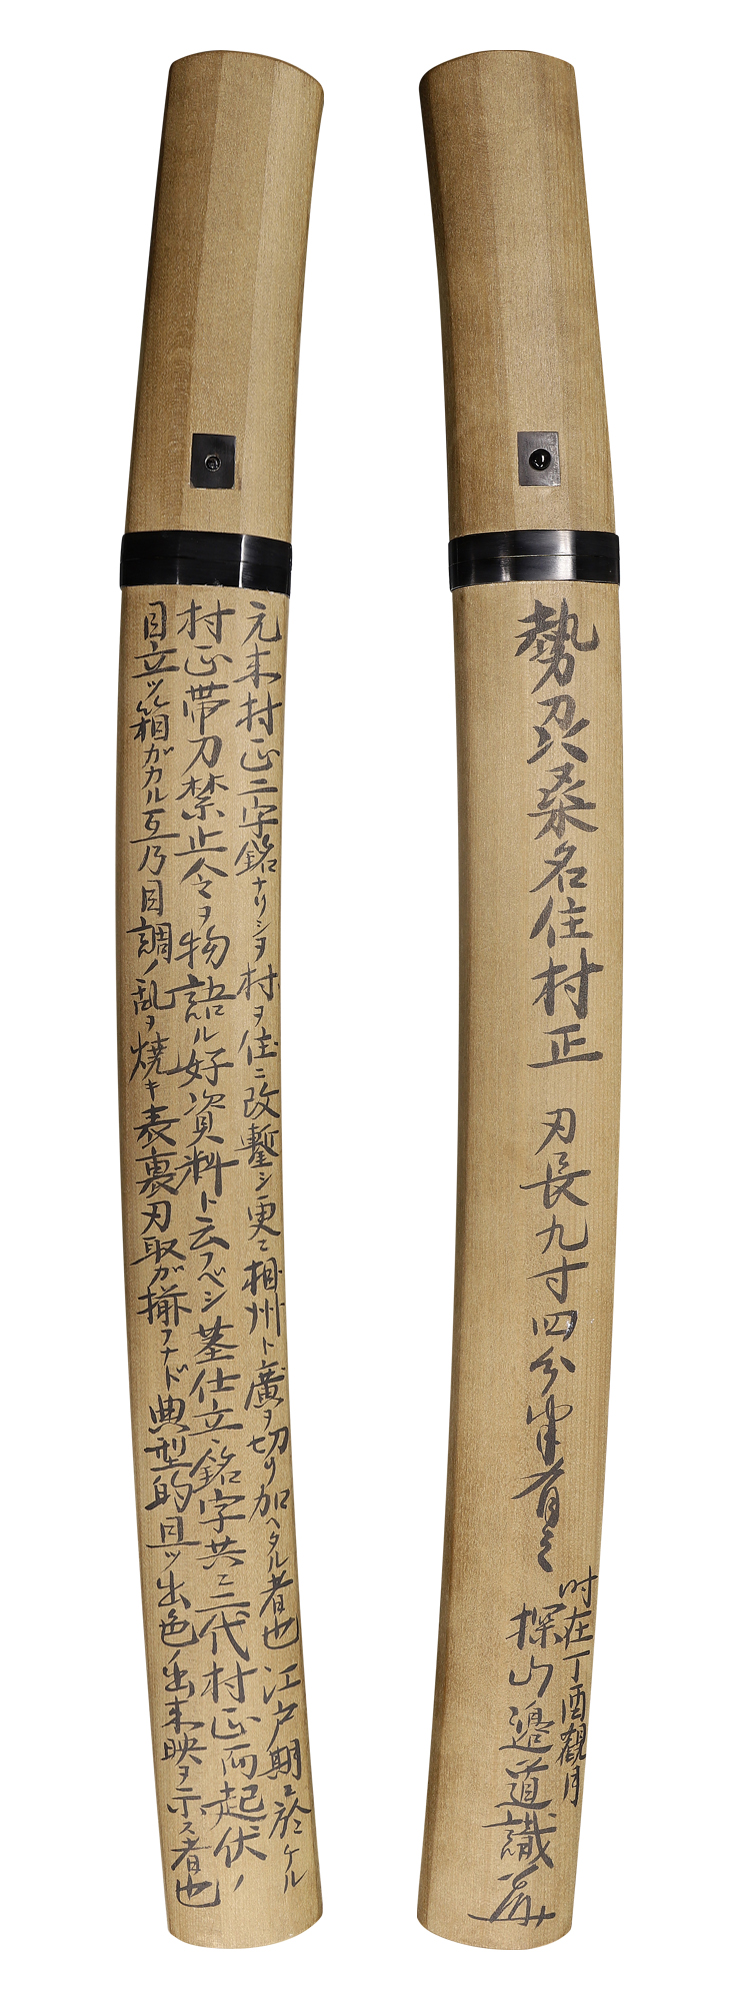 勢刕桑名住村正 刃長九寸四分半有之
時在丁酉観月
探山邉道識
元来村正二字銘ナリシヲ村ヲ住ニ改鏨シ更ニ相州ト廣ヲ切リ加ヘタル者也江戸期ニ於ケル
村正帯刀禁止令ヲ物語ル好資料ト云フベシ茎仕立銘字共ニ二代村正而起伏ノ
目立ツ箱ガカル互乃目調ノ乱ヲ焼キ表裏刃取ガ揃フナド典型的且ツ出色ノ出来映ヲ示ス者也